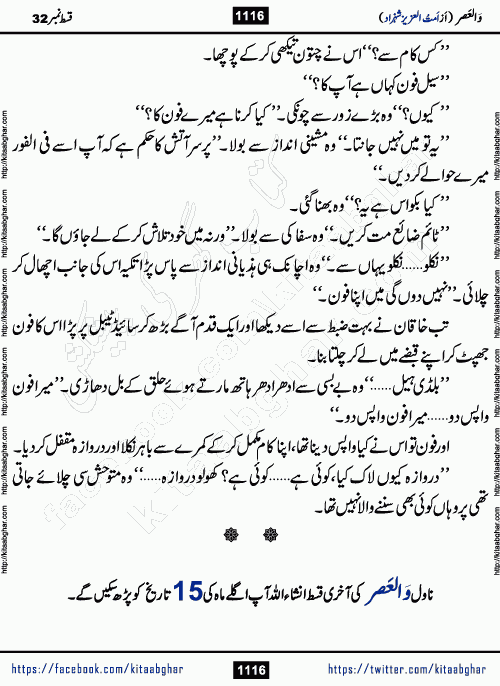 وَالعَصر (از اَمتُ العزیز شہزاد) 1116 قسط نمبر 32
’’کس کام سے؟‘‘ اس نے چتون تیکھی کر کے پوچھا۔
’’سیل فون کہاں ہے آپ کا؟‘‘
’’کیوں؟‘‘ وہ بڑے زور سے چونکی۔ ’’کیا کرنا ہے میرے فون کا؟‘‘
’’یہ تو میں نہیں جانتا۔‘‘ وہ مشینی انداز سے بولا۔ ’’پر سر آتش کا حکم ہے کہ آپ اسے فی الفور
میرے حوالے کر دیں۔‘‘
’’کیا بکواس ہے یہ؟‘‘ وہ بھنا گئی۔
’’ٹائم ضائع مت کریں۔‘‘ وہ سفاکی سے بولا۔ ’’ورنہ میں خود تلاش کر کے لے جاؤں گا۔‘‘
’’نکلو......نکلو یہاں سے۔‘‘ وہ اچانک ہی ہذیانی انداز سے پاس پڑا تکیہ اس کی جانب اچھال کر
چلائی۔ ’’نہیں دوں گی میں اپنا فون۔‘‘
تب خاقان نے بہت ضبط سے اسے دیکھا اور ایک قدم آگے بڑھ کر سائیڈ ٹیبل پر پڑا اس کا فون
جھپٹ کر اپنے قبضے میں لے کر چلتا بنا۔
’’بلڈی ہیل......‘‘ وہ بے بسی سے ادھر ادھر ہاتھ مارتے ہوئے حلق کے بل دھاڑی۔ ’’میرا فون
واپس دو......میرا فون واپس دو۔‘‘
اور فون تو اس نے کیا واپس دینا تھا، اپنا کام مکمل کر کے کمرے سے باہر نکلا اور دروازہ مقفل کر دیا۔
’’دروازہ کیوں لاک کیا، کوئی ہے......کوئی ہے؟ کھولو دروازہ......‘‘ وہ متوحش سی چلائے جاتی
تھی پر وہاں کوئی بھی سننے والا نہیں تھا۔
ناول وَالعَصر کی آخری قسط انشاء اللہ آپ اگلے ماہ کی 15 تاریخ کو پڑھ سکیں گے۔
https://facebook.com/kitaabghar 1116 https://twitter.com/kitaabghar
http://kitaabghar.com
http://kitaabghar.com
http://kitaabghar.com
http://kitaabghar.com
http://kitaabghar.com
http://kitaabghar.com
http://kitaabghar.com
http://kitaabghar.com
http://kitaabghar.com
http://kitaabghar.com
http://kitaabghar.com
http://kitaabghar.com